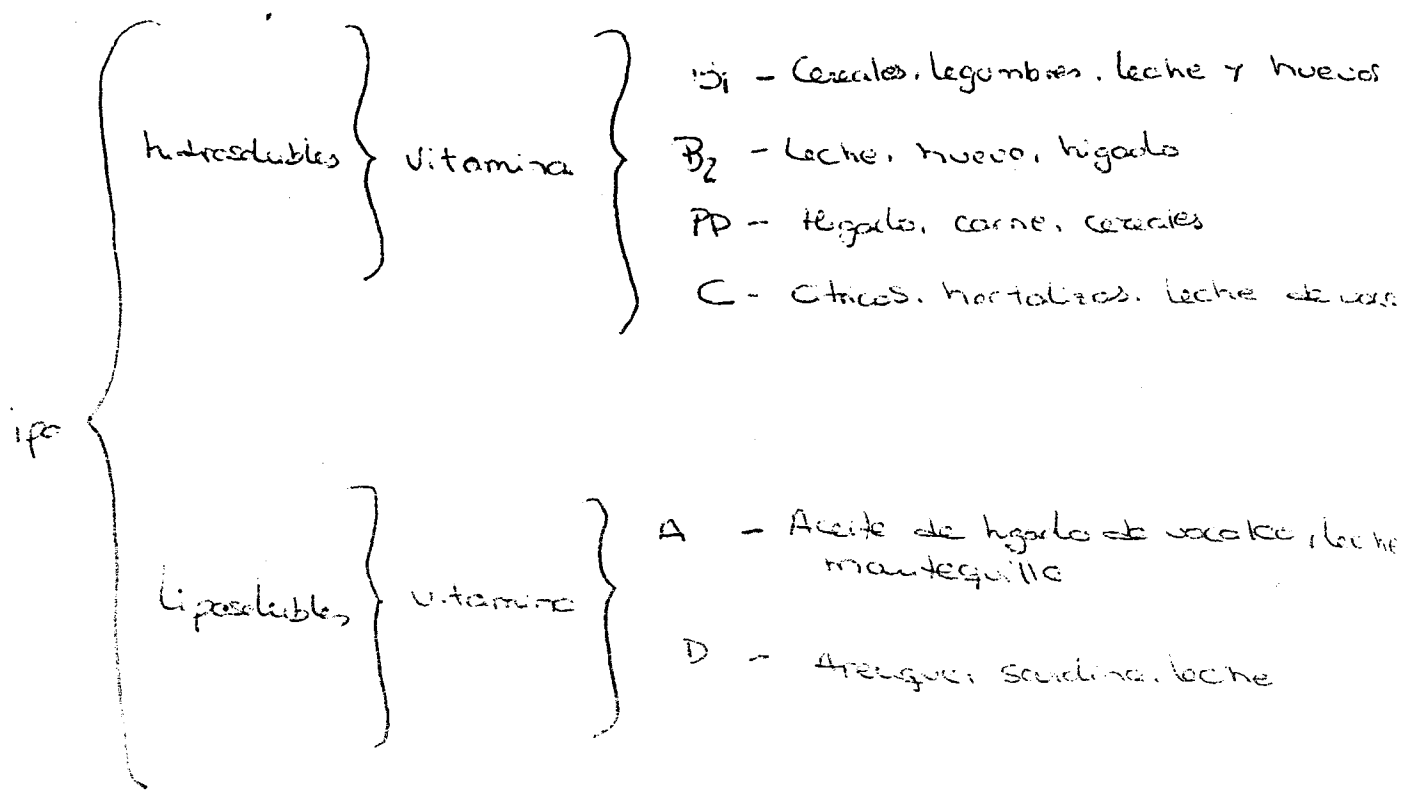 hidrosolubles vitamina
B1 - Cereales, legumbres, leche y huevos
B2 - leche, huevo, higado
PP - Higado, carne, cereales
C - Citricos, hortalizas, leche de
ipo
Liposolubles vitamina
A - Aceite de higado de, leche
mantequilla
D - Arenque, sardina, leche